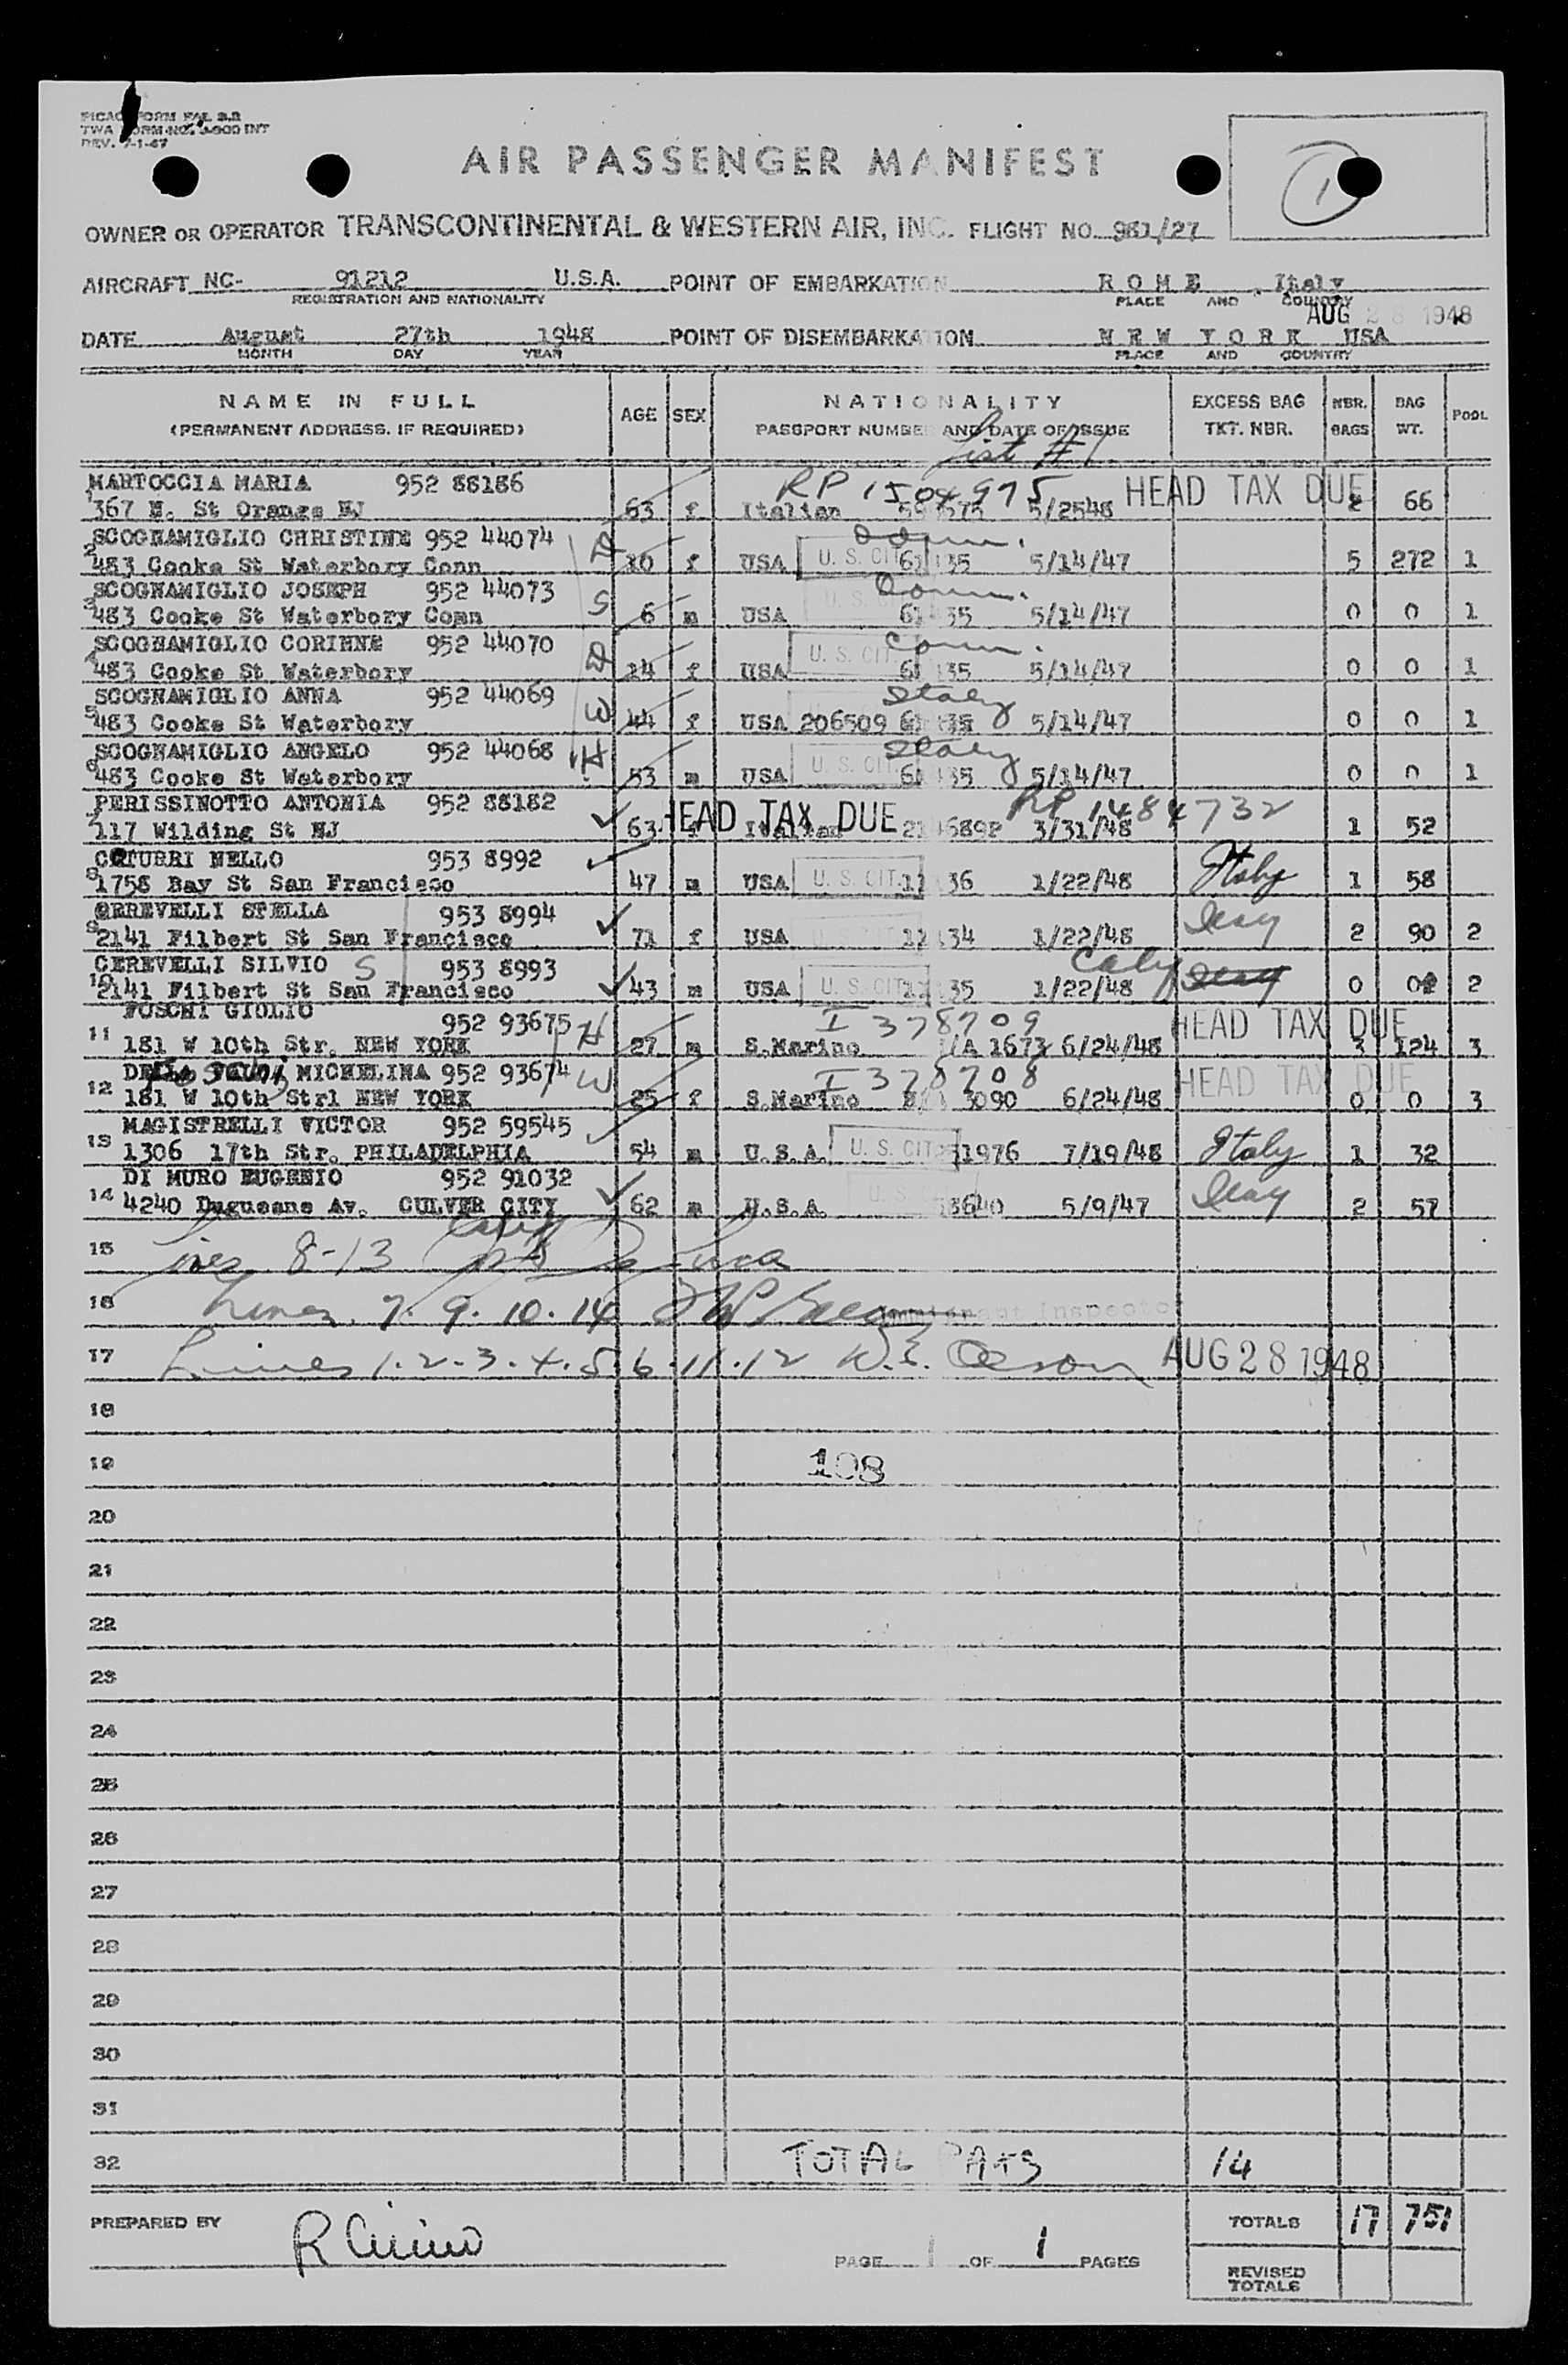 PICAO FORM FAL 3.2
TWA FORM NO. INT
REV. 7-1-47
AIR PASSENGER MANIFEST
1
OWNER OR OPERATOR TRANSCONTINENTAL & WESTERN AIR, INC. FLIGHT NO. 981/27
AIRCRAFT NC- 91212 U.S.A. POINT OF EMBARKATION ROME, Italy
REGISTRATION AND NATIONALITY PLACE AND COUNTRY
AUG 28 1948
DATE August 27th 1948 POINT OF DISEMBARKATION NEW YORK USA
MONTH DAY YEAR PLACE AND COUNTRY
NAME IN FULL AGE SEX NATIONALITY EXCESS BAG NBR. BAG POOL
(PERMANENT ADDRESS, IF REQUIRED) PASSPORT NUMBER AND DATE OF ISSUE TKT. NBR. BAGS WT.
List #1
MARTOCCIA MARIA 952 88186 RP 1504975 HEAD TAX DUE
1 367 N. St Orange NJ 63 f Italian 5/2548 2 66
SCOGNAMIGLIO CHRISTINE 952 44074 D Conn.
2 483 Cooke St Waterbory Conn 10 f USA U. S. CIT. 61135 5/14/47 5 272 1
SCOGNAMIGLIO JOSEPH 952 44073 S Conn.
3 483 Cooke St Waterbory Conn 6 m USA U. S. CIT. 61135 5/14/47 0 0 1
SCOGNAMIGLIO CORINNE 952 44070 D Conn.
4 483 Cooke St Waterbory 14 f USA U. S. CIT. 61135 5/14/47 0 0 1
SCOGNAMIGLIO ANNA 952 44069 W Italy
5 483 Cooke St Waterbory 44 f USA 206509 61135 5/14/47 0 0 1
SCOGNAMIGLIO ANGELO 952 44068 H Italy
6 483 Cooke St Waterbory 53 m USA U. S. CIT. 61135 5/14/47 0 0 1
PERISSINOTTO ANTONIA 952 88182 HEAD TAX DUE RP 1484732
7 117 Wilding St NJ 63 f Italian 2146892 3/31/48 1 52
COTURRI NELLO 953 8992
8 1758 Bay St San Francisco 47 m USA U. S. CIT. 11136 1/22/48 Italy 1 58
CEREVELLI STELLA 953 8994
9 2141 Filbert St San Francisco 71 f USA 12134 1/22/48 Italy 2 90 2
CEREVELLI SILVIO S 953 8993 Calif
10 2141 Filbert St San Francisco 43 m USA U. S. CIT. 12135 1/22/48 Italy 0 0 2
FOSCHI GIULIO 952 93675 H I 378709 HEAD TAX DUE
11 181 W 10th Str. NEW YORK 27 m S.Marino 1673 6/24/48 3 124 3
MICHELINA 952 93674 W I 378708 HEAD TAX DUE
12 181 W 10th Strl NEW YORK 25 f S.Marino 3090 6/24/48 0 0 3
MAGISTRELLI VICTOR 952 59545
13 1306 17th Str. PHILADELPHIA 54 m U.S.A. U. S. CIT. 31976 7/19/48 Italy 1 32
DI MURO EUGENIO 952 91032
14 4240 Duguesne Av. CULVER CITY 62 m U.S.A. 5/9/47 Italy 2 57
Calif
15 Lines 8-13
16 Lines 7. 9. 10. 14 Immigrant Inspector
17 Lines 1. 2. 3. 4. 5. 6. 11. 12 AUG 28 1948
18
19 108
20
21
22
23
24
25
26
27
28
29
30
31
32 TOTAL PAXS 14
PREPARED BY TOTALS 17 751
PAGE 1 OF 1 PAGES
REVISED
TOTALS